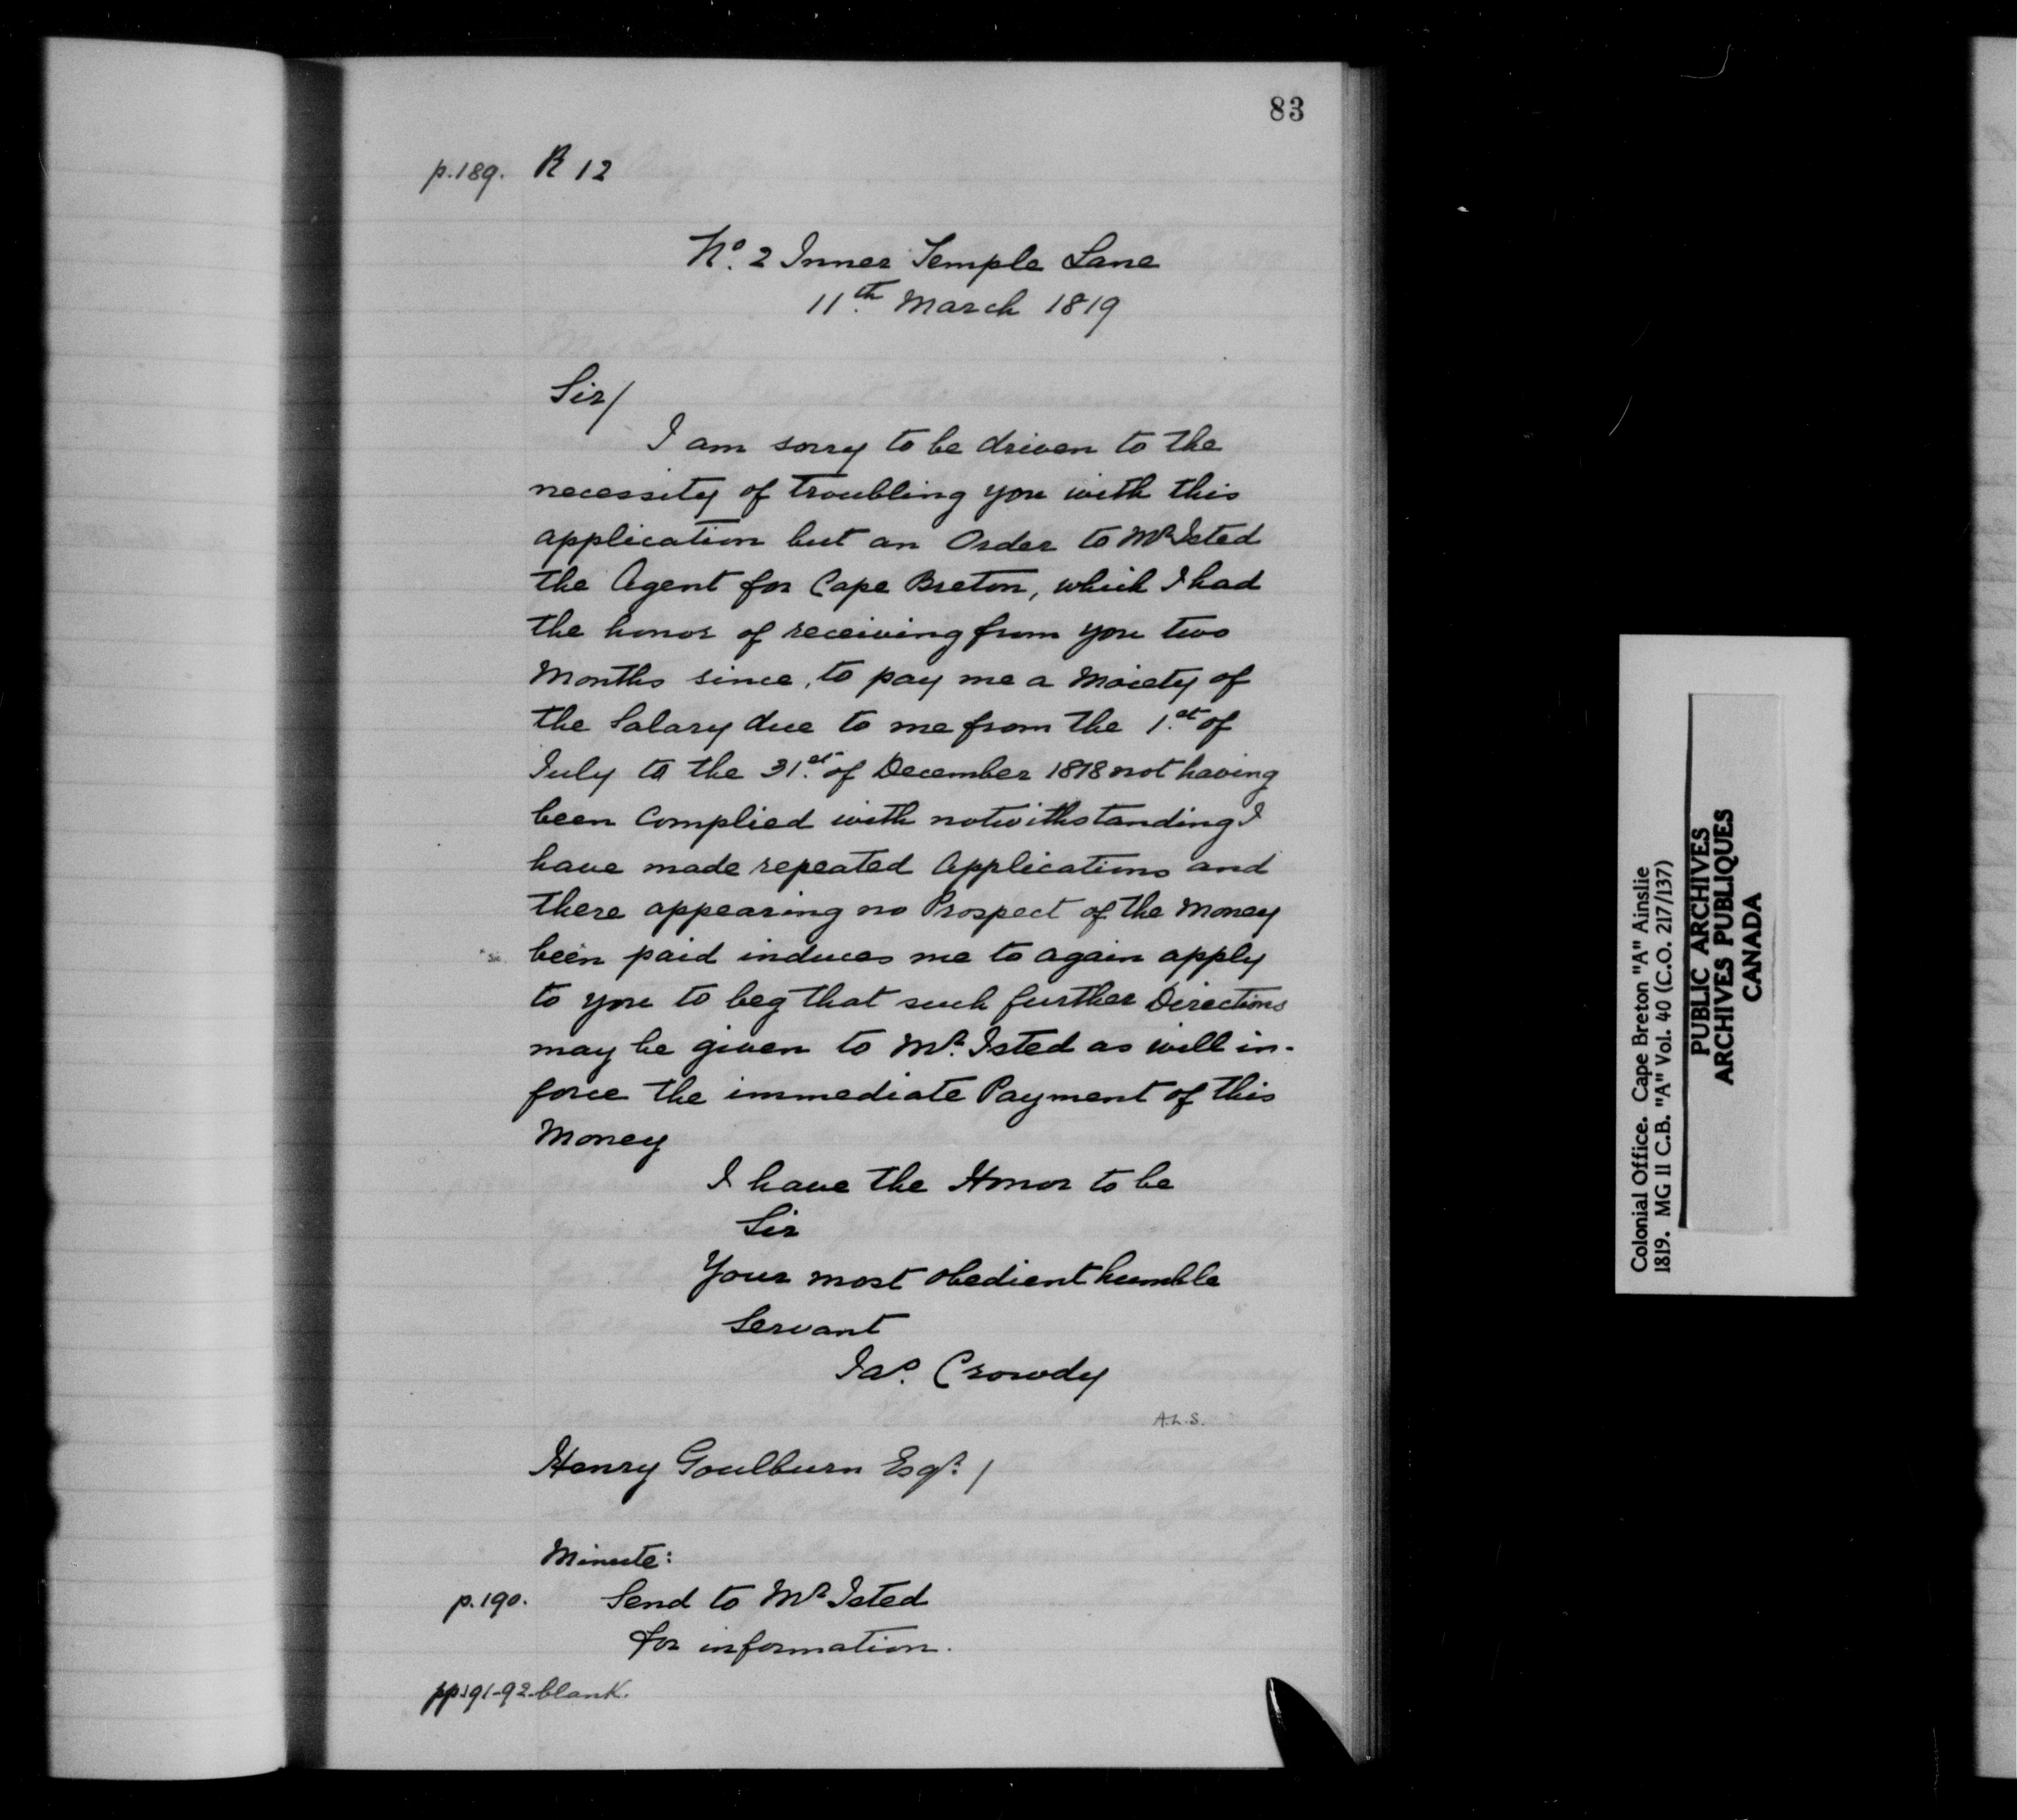 83
p.189. R 12
No. 2 Inner Temple Lane
11th. March 1819
Sir/
I am sorry to be driven to the
necessity of troubling you with this
application but an Order to Mr Isted
the Agent for Cape Breton, which I had
the honor of receiving from you two
Months since, to pay me a Moiety of
the Salary due to me from the 1.st of
July to the 31.st of December 1818 not having
been Complied with notwithstanding I
have made repeated Applications and
there appearing no Prospect of the Money
sic. been paid induces me to again apply
to you to beg that such further Directions
may be given to Mr. Isted as will in-
force the immediate Payment of this
Money
I have the Honor to be
Sir
Your most obedient humble
Servant
Jas. Crowdy
A.L.S.
Henry Goulburn Esqr. /
Minute:
p.190. Send to Mr Isted
for information.
pp191-92-blank.
Colonial Office. Cape Breton "A" Ainslie
1819. MG 11 C.B. "A" Vol. 40 (C.O. 217/137)
PUBLIC ARCHIVES
ARCHIVES PUBLIQUES
CANADA